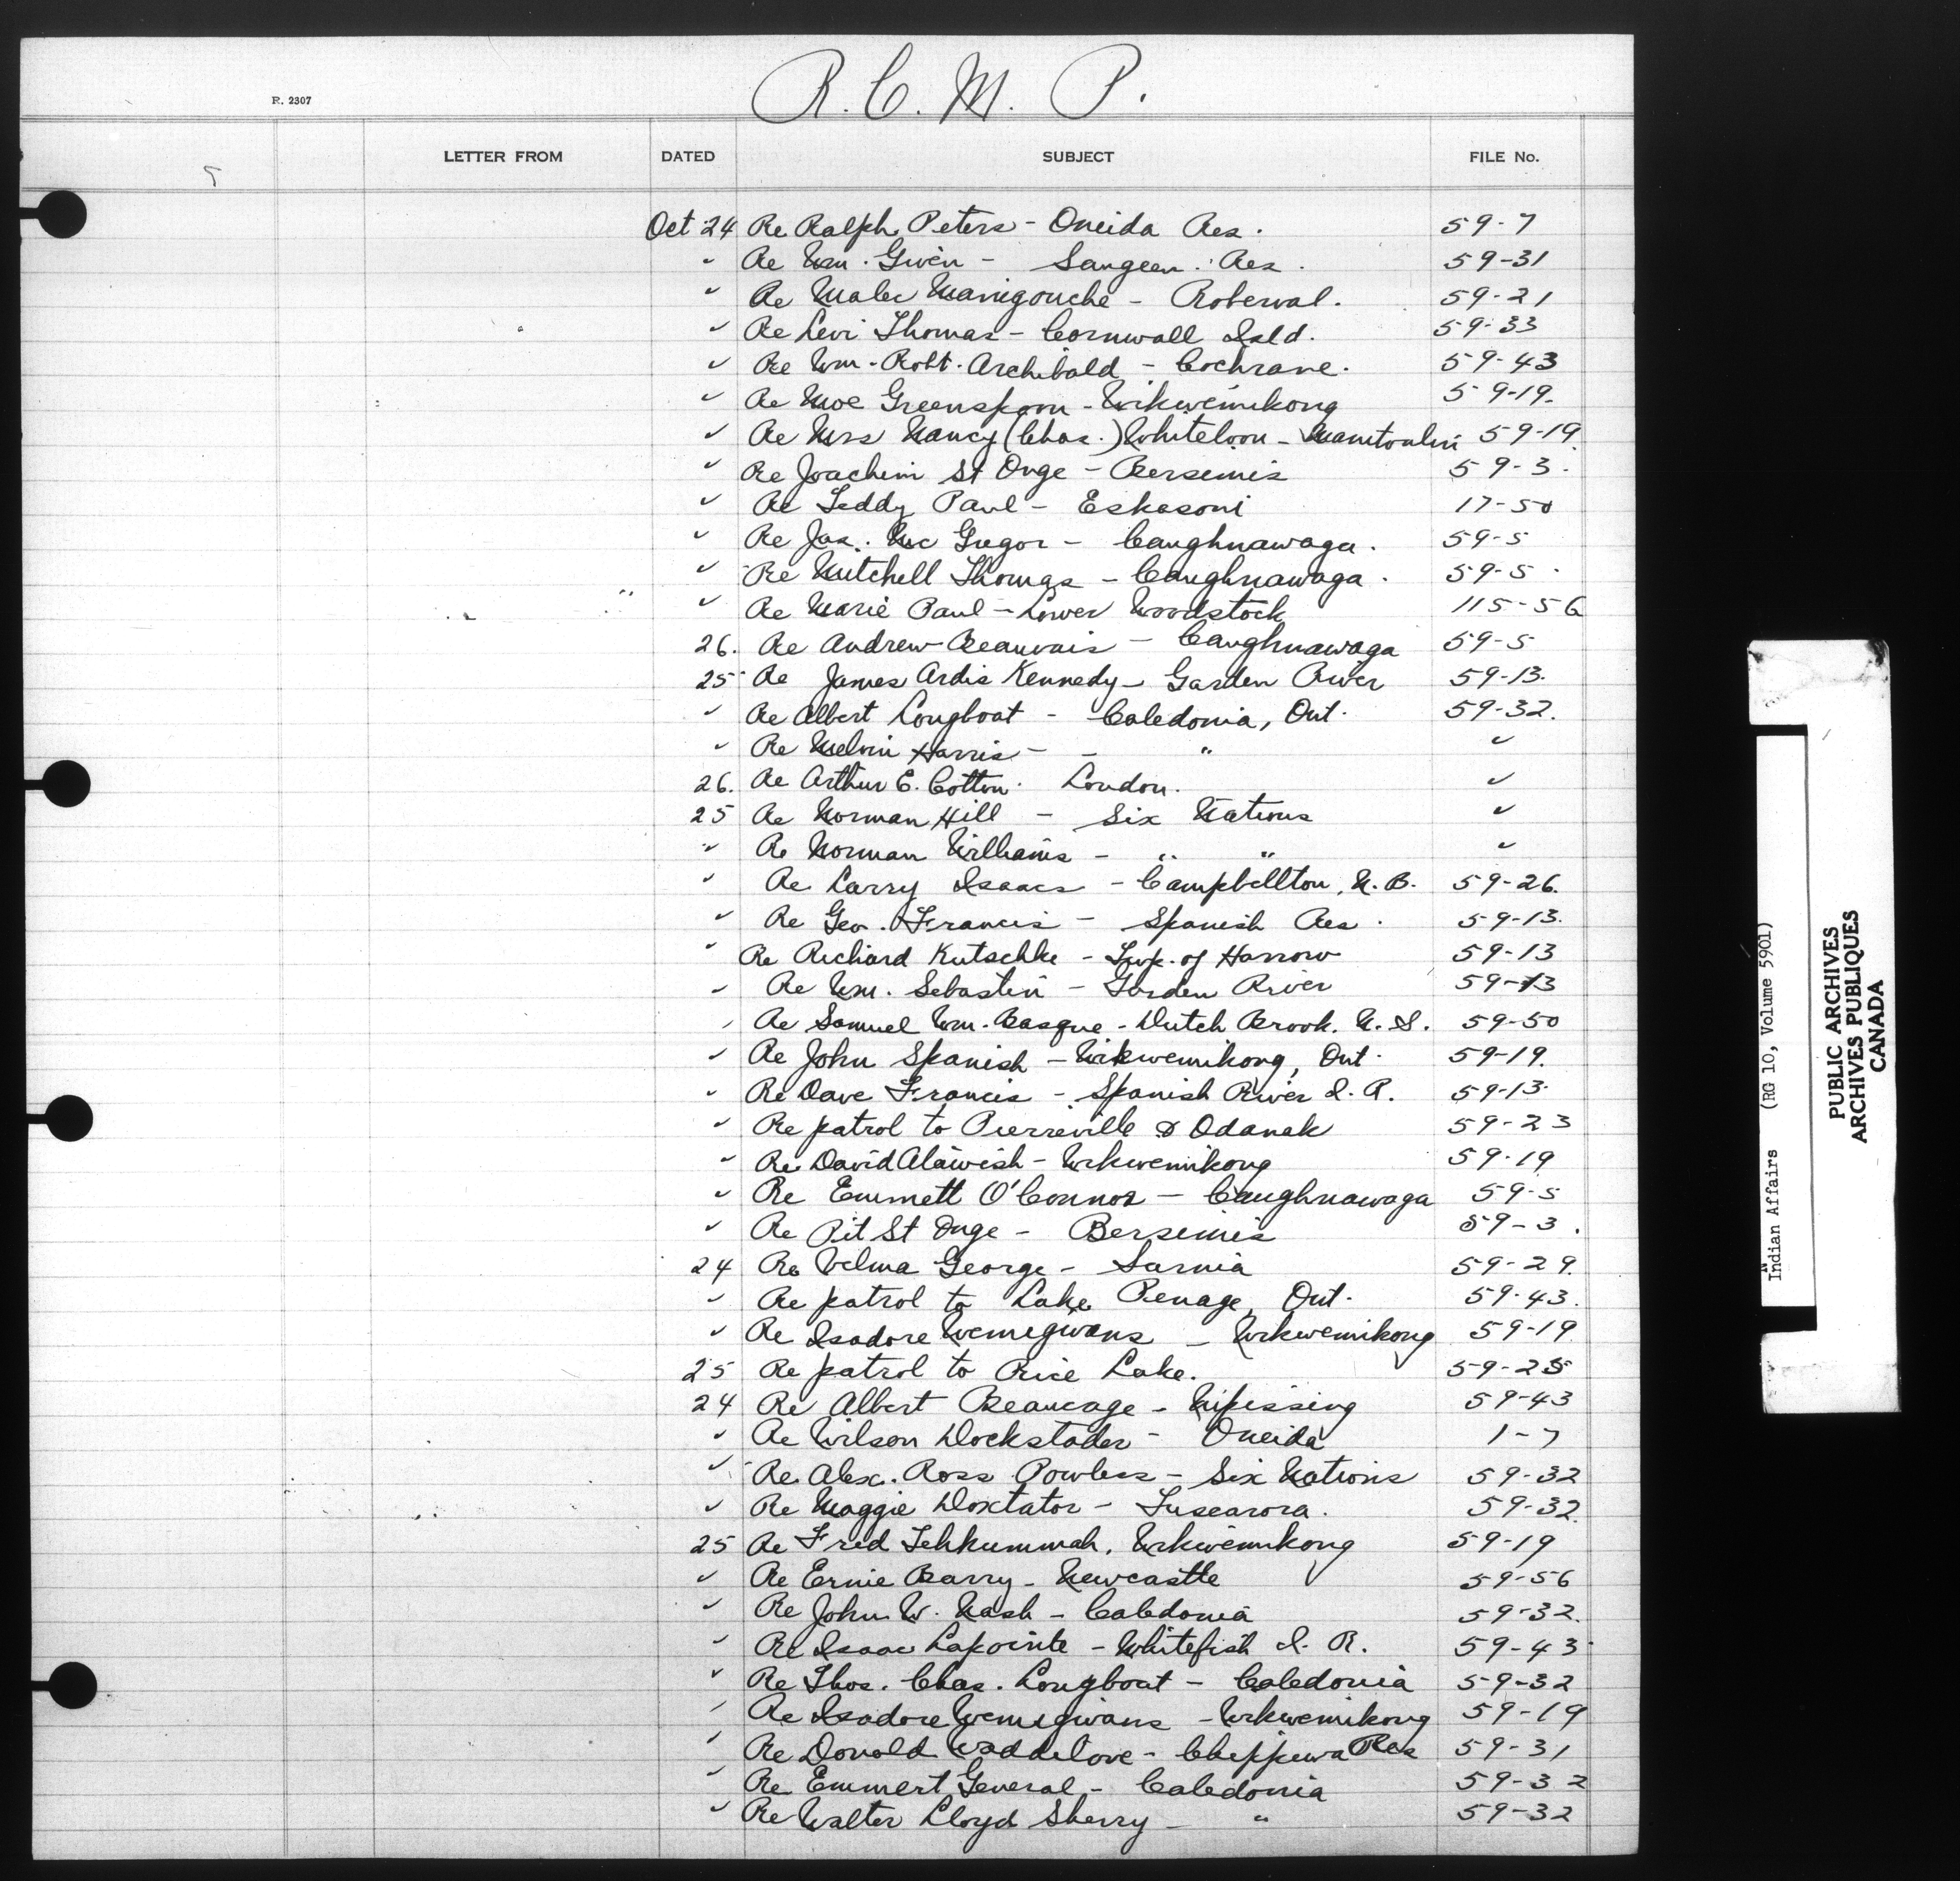 R. C. M. P.
R. 2307
LETTER FROM DATED SUBJECT FILE No.
Oct 24 Re Ralph Peters - Oneida Res. 59-7
" Re Wm. Given - Saugeen Res. 59-31
" Re Malec Manigouche - Roberval. 59-21
" Re Levi Thomas - Cornwall Isld. 59-33
" Re Wm. Robt. Archibald - Cochrane. 59-43
" Re Moe Greenspoon - Wikwemikong 59-19.
" Re Mrs Nancy (Chas.) Whiteloon - Manitoulin 59-19.
" Re Joachim St Onge - Bersemis 59-3.
" Re Teddy Paul - Eskasoni 17-50
" Re Jas. Mc Gregor - Caughnawaga. 59-5
" Re Mitchell Thomas - Caughnawaga. 59-5
" Re Marie Paul - Lower Woodstock 115-56
26. Re Andrew Beauvais - Caughnawaga 59-5
25 Re James Ardis Kennedy - Garden River 59-13.
" Re Albert Longboat - Caledonia, Ont. 59-32.
" Re Melvin Harris - - " "
26. Re Arthur E. Cotton. London. "
25 Re Norman Hill - Six Nations "
" Re Norman Williams - " " "
" Re Larry Isaacs - Campbellton, N. B. 59-26.
" Re Geo. Francis - Spanish Res. 59-13.
" Re Richard Kutschke - Twp. of Harrow 59-13
" Re Wm. Sebastin - Garden River 59-13
" Re Samuel Wm. Basque - Dutch Brook. N. S. 59-50
" Re John Spanish - Wikwemikong, Ont. 59-19.
" Re Dave Francis - Spanish River I. R. 59-13.
" Re patrol to Pierreville & Odanak 59-23
" Re David Alawish - Wikwemikong 59-19
" Re Emmett O'Connor - Caughnawaga 59-5
" Re Pit St Onge - Bersemis 59-3.
24 Re Velma George - Sarnia 59-29.
" Re patrol to Lake Penage, Ont. 59-43.
" Re Isadore Wemigwans - Wikwemikong 59-19
25 Re patrol to Rice Lake. 59-25
24 Re Albert Beaucage - Nipissing 59-43
" Re Wilson Dockstader - Oneida 1-7
" Re Alex. Ross Powless - Six Nations 59-32
" Re Maggie Doxtator - Tuscarora. 59-32.
25 Re Fred Tehkummah, Wikwemikong 59-19
" Re Ernie Barry - Newcastle 59-56
" Re John W. Nash - Caledonia 59-32.
" Re Isaac Lapointe - Whitefish I. R. 59-43
" Re Thos. Chas. Longboat - Caledonia 59-32
" Re Isadore Wemigwans - Wikwemikong 59-19
" Re Donald Waddilove - Chippewa Res 59-31
" Re Emmert General - Caledonia 59-32
" Re Walter Lloyd Sherry - " 59-32
Indian Affairs (RG 10, Volume 5901)
PUBLIC ARCHIVES
ARCHIVES PUBLIQUES
CANADA